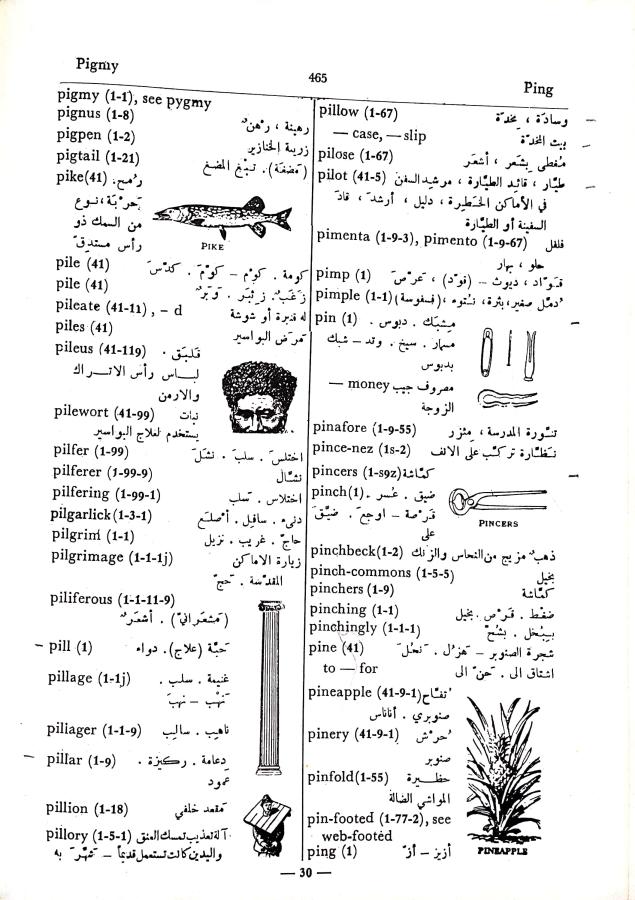 Pigmy
465
Ping
pigmy (1-1), see pygmy
pignus (1-8) رهينة ، رهن
pigpen (1-2) زريبة الخنازير
pigtail (1-21) (مضفة). تبغ المضغ
pike(41) رمح.
حربة، نوع
من السمك ذو
رأس مستدق
PIKE
pile (41) كومة. كوم - كوم. كدس
pile (41) زغب. زئبر. وبر
pileate (41-11), - d له قنبرة أو شوشة
piles (41) مرض البواسير
pileus (41-119) قلبق.
لباس رأس الاتراك
والارمن
pilewort (41-99) نبات
يستخدم لعلاج البواسير
pilfer (1-99) اختلس. سلب. نشل
pilferer (1-99-9) نشال
pilfering (1-99-1) اختلاس. سلب
pilgarlick(1-3-1) دنيء. سافل. أصلع
pilgrim (1-1) حاج. غريب. نزيل
pilgrimage (1-1-1j) زيارة الاماكن
المقدسة. حج
piliferous (1-1-11-9)
(مشعراني). أشعر
pill (1) حبة (علاج). دواء
pillage (1-1j) غنيمة. سلب.
نهب - نهب
pillager (1-1-9) ناهب. سالب
pillar (1-9) دعامة. ركيزة.
عمود
pillion (1-18) مقعد خلفي
pillory (1-5-1) آلة تعذيب تمسك العنق
واليدين كانت تستعمل قديماً - شهر به
pillow (1-67) وسادة ، مخدة
— case, — slip بيت المخدة
pilose (1-67) مغطى بشعر ، أشعر
pilot (41-5) طيار ، قائد الطيارة ، مرشد السفن
في الأماكن الخطيرة ، دليل ، أرشد ، قاد
السفينة أو الطيارة
pimenta (1-9-3), pimento (1-9-67) فلفل
حلو ، بهار
pimp (1) قواد ، ديوث - (قود) ، عرص
pimple (1-1) دمل صغير، بثرة، نتوء، (فسفوسة)
pin (1) مشبك. دبوس.
مسمار. سيخ. وتد - شبك
بدبوس
— money مصروف جيب
الزوجة
pinafore (1-9-55) تنورة المدرسة ، مئزر
pince-nez (1s-2) نظارة تركب على الانف
pincers (1-s9z) كماشة
pinch(1) ضيق. عسر.
قرصة - اوجع. ضيق
على
PINCERS
pinchbeck(1-2) ذهب مزيج من النحاس والزنك
pinch-commons (1-5-5) بخيل
pinchers (1-9) كماشة
pinching (1-1) ضغط. قرص. بخيل
pinchingly (1-1-1) ببخل. بشح
pine (41) شجرة الصنوبر - هزل. نحل
to — for اشتاق الى. حن الى
pineapple (41-9-1) تفاح
صنوبري. أناناس
pinery (41-9-1) حرش
صنوبر
pinfold(1-55) حظيرة
المواشي الضالة
pin-footed (1-77-2), see
web-footed
ping (1) أزيز - أز
PINEAPPLE
— 30 —